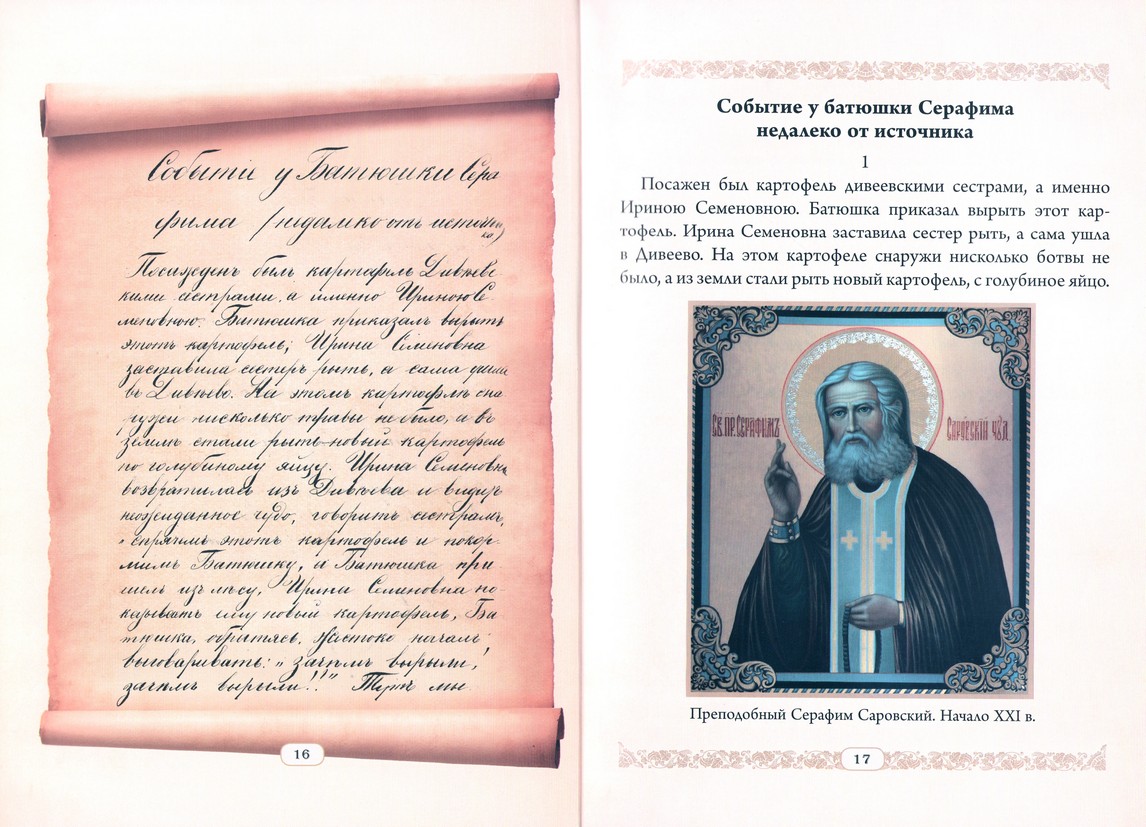 Событіе у Батюшки Сера
фима (недалеко отъ источни
ка)
Посаженъ былъ картофель Дивѣевс
кими сестрами, а именно Ириною Се
меновною. Батюшка приказалъ вырыть
этотъ картофель; Ирина Семеновна
заставила сестеръ рыть, а сама ушла
въ Дивѣево. На этомъ картофелѣ сна
ружи нисколько травы не было, а въ
землѣ стали рыть новый картофель
по голубиному яйцу. Ирина Семеновна
возвратилась изъ Дивѣева и видитъ
неожиданное чудо, говоритъ сестрамъ,
спрячемъ этотъ картофель и покор
мимъ Батюшку, а Батюшка при
шелъ изъ лѣсу, Ирина Семеновна по-
казываетъ ему новый картофель, Ба
тюшка, обратясь, жестоко началъ
выговаривать: „зачѣмъ вырыли,!
зачѣмъ вырыли!!" мы
16
Событие у батюшки Серафима
недалеко от источника
1
Посажен был картофель дивеевскими сестрами, а именно
Ириною Семеновною. Батюшка приказал вырыть этот кар-
тофель. Ирина Семеновна заставила сестер рыть, а сама ушла
в Дивеево. На этом картофеле снаружи нисколько ботвы не
было, а из земли стали рыть новый картофель, с голубиное яйцо.
СВ ПР. СЕРАФИМЪ САРОВСКІЙ ЧУД.
Преподобный Серафим Саровский. Начало XXI в.
17